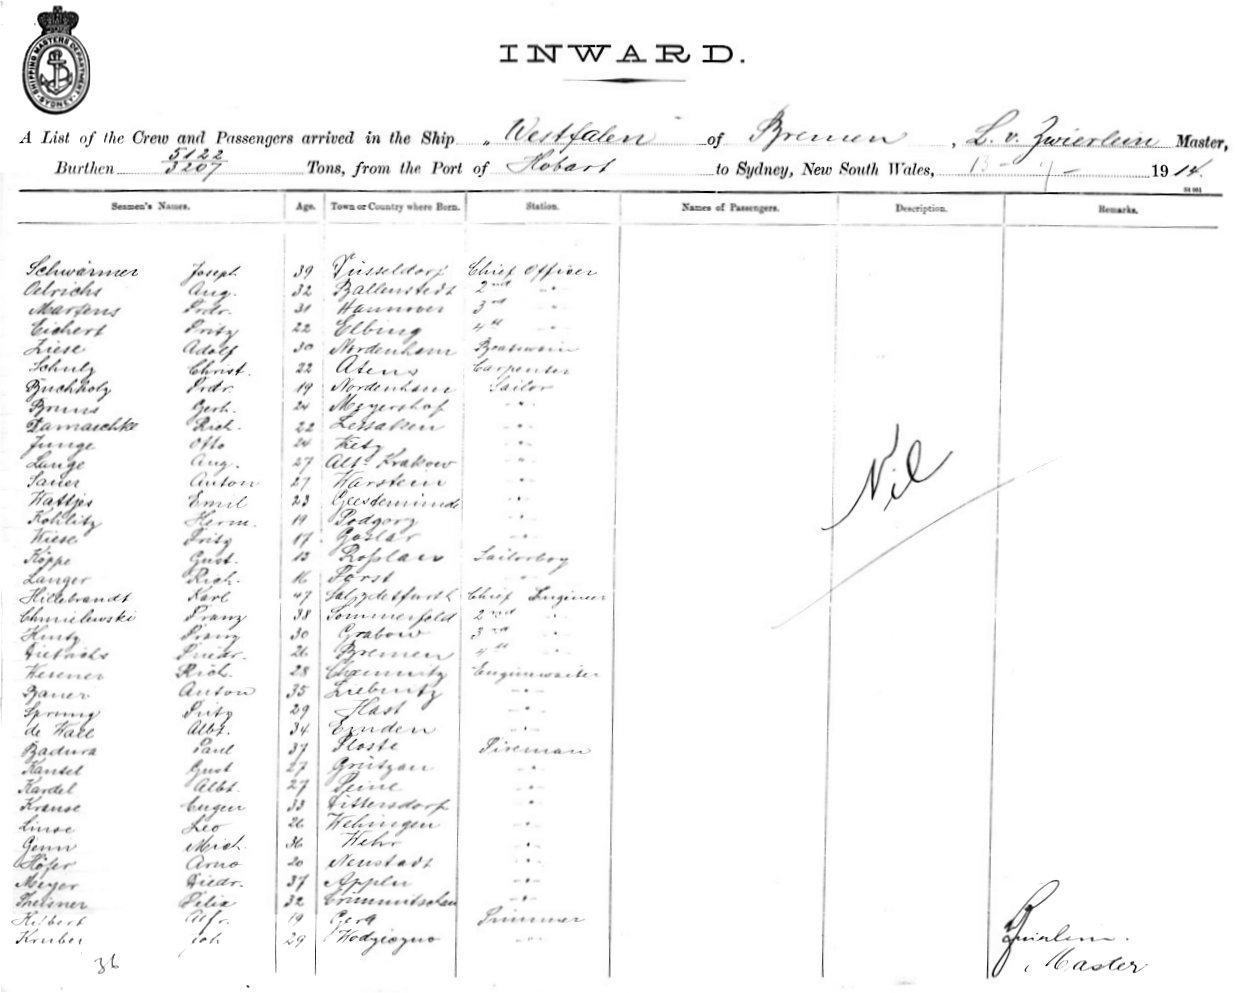 SHIPPING MASTERS DEPARTMENT SYDNEY
INWARD.
A List of the Crew and Passengers arrived in the Ship „ Westfalen " of Bremen, L. v. Zwierlein Master,
Burthen 5122 / 3207 Tons, from the Port of Hobart to Sydney, New South Wales, 13 - 4 - 1914.
Seamen's Names. Age. Town or Country where Born. Station. Names of Passengers. Description. Remarks.
Schwärmer Joseph 39 Düsseldorf Chief Officer
Oelrichs Aug. 32 Ballenstedt 2nd -"-
Martens Frdr. 31 Hannover 3rd -"-
Eichert Fritz 22 Elbing 4th -"-
Ziese Adolf 30 Nordenham Boatswain
Schulz Christ. 22 Atens Carpenter
Buchholz Frdr. 19 Nordenham Sailor
Bruns Gerh. 24 Meyershof -"-
Damaschke Rich. 22 -"-
Junge Otto 24 -"-
Lange Aug. 27 Alt Krakow -"-
Sauer Anton 27 Warstein -"-
Wattjes Emil 23 Geestemünde -"-
Kohlitz Herm. 19 Podgorz -"-
Wiese Fritz 17 Goslar -"-
Köppe Gust. Roßlau Sailorboy
Langer Rich. 16 Forst -"-
Hillebrandt Karl 47 Salzdetfurth Chief Engineer
Chmielewski Franz 38 Sommerfeld 2nd -"-
Hintz Franz 30 Grabow 3rd -"-
Dietrichs Friedr. 26 Bremen 4th -"-
Wesener Rich. 28 Chemnitz Enginewaiter
Bauer Anton 35 -"-
Sprung Fritz 29 Hast -"-
de Wall Albt. 34 Emden -"-
Badura Paul 37 Fireman
Kansel Gust 27 -"-
Kardel Albt. 27 Peine -"-
Krause Eugen 33 Dittersdorf -"-
Linse Leo 26 Wehingen -"-
Genn Mich. 36 Wehr -"-
Höfer Arno 20 Neustadt -"-
Meyer Diedr. 37 Appeln -"-
Felix 32 Crimmitschau -"-
Hilbert Alfr. 19 Gera Trimmer
Kruber Joh 29 -"-
36
Nil
Zwierlein.
Master